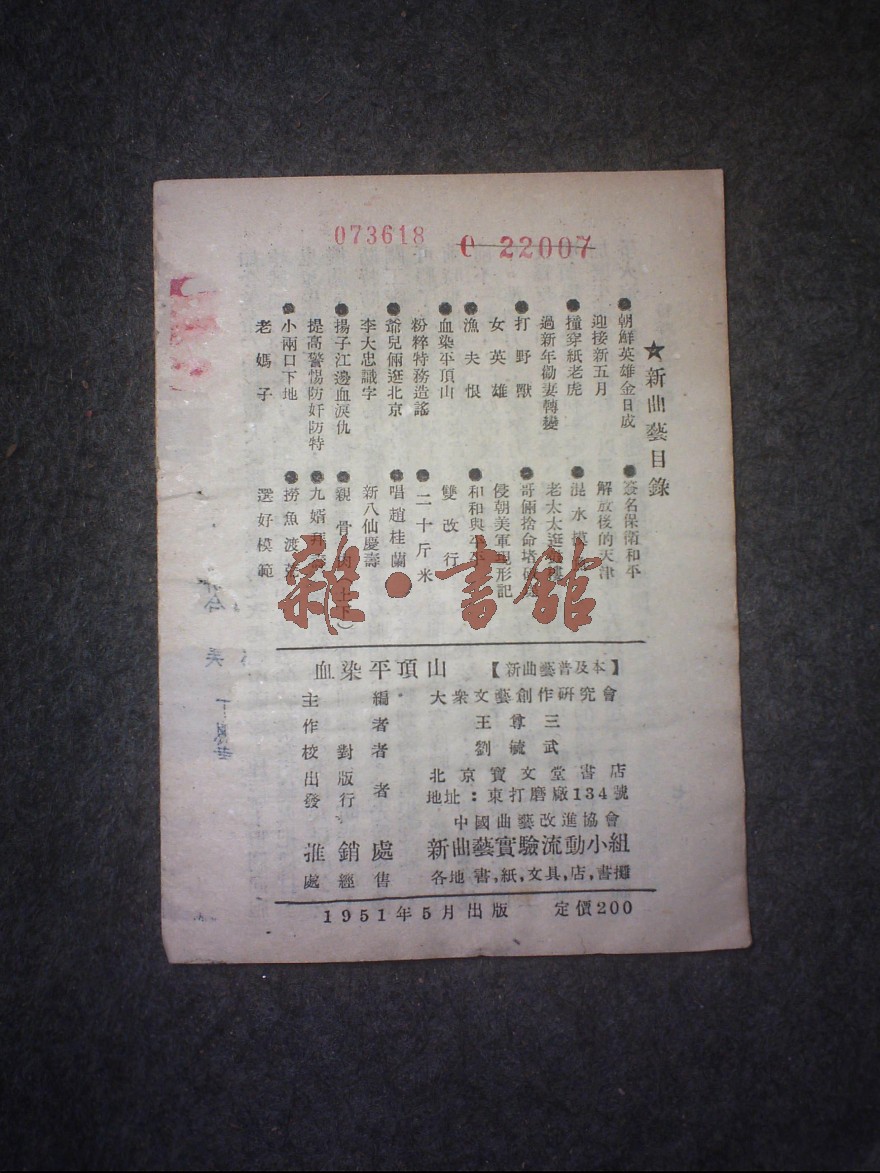 073618 0 22007
★新曲藝目錄
●朝鮮英雄金日成
迎接新五月
●撞穿紙老虎
過新年勸妻轉變
●打野獸
女英雄
●漁夫恨
●血染平頂山
粉粹特務造謠
●爺兒倆逛北京
李大忠識字
●揚子江邊血淚仇
提高警惕防奸防特
●小兩口下地
老媽子
●簽名保衛和平
解放後的天津
●混水
老太太逛
●哥倆捨命堵
侵朝美軍現形記
●和和與平平
雙改行
●二十斤米
●唱趙桂蘭
新八仙慶壽
●親骨肉(上下)
●九婿
●撈魚渡
選好模範
雜·書館
血染平頂山 【新曲藝普及本】
主編 大衆文藝創作研究會
作者 王尊三
校對者 劉毓武
出版者 北京寶文堂書店
發行者 地址：東打磨廠134號
中國曲藝改進協會
推銷處 新曲藝實驗流動小組
處經售 各地書,紙,文具,店,書攤
1951年5月出版 定價200